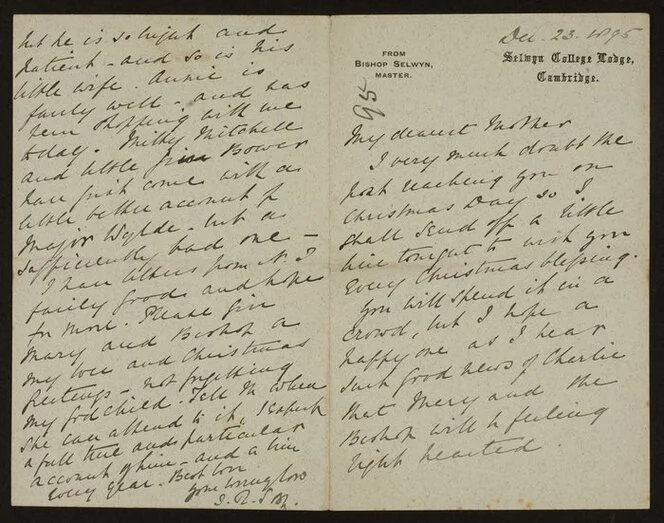 Dec. 23. 1895
FROM
BISHOP SELWYN,
MASTER.
Selwyn College Lodge,
Cambridge.
95
My dearest Mother
I very much doubt the
post reaching you on
Christmas Day so I
shall send off a little
line tonight to wish you
every Christmas blessing.
You will spend it in a
crowd, but I hope a
happy one as I hear
such good news of Charlie
that Mary and the
Bishop will be feeling
light hearted.
but he is so bright and
patient - and so is his
little wife. Annie is
fairly well - and has
been shopping with me
today. Milly Mitchell
and little Bower
have just come with a
little better account of
Major Wylde - but a
sufficiently bad one -
I have letters from N. I
fairly good and hope
for more. Please give
Mary and Bishop a
my love and Christmas
greetings - not forgetting
my godchild. Tell M when
she can attend to it, I expect
a full true and particular
account of him - and a line
every year. Best love
Your loving son